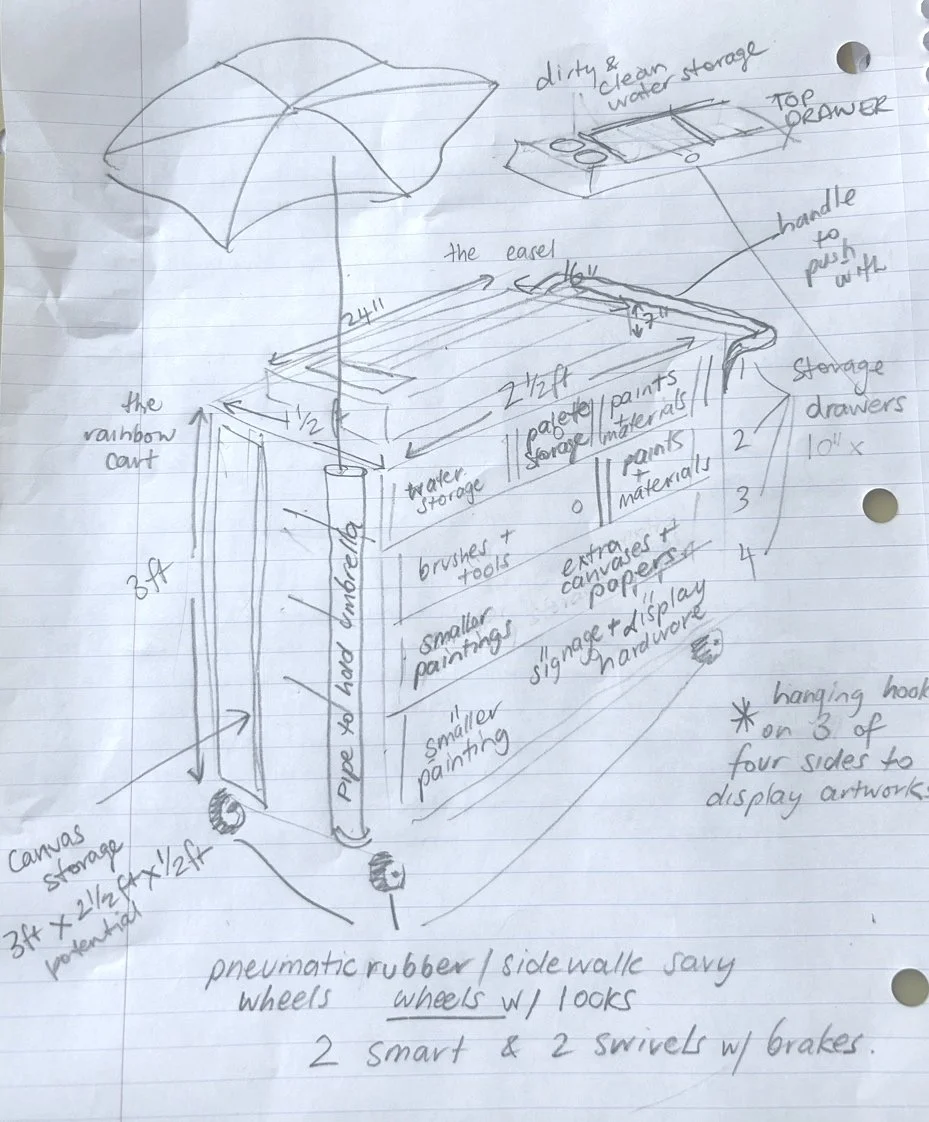 dirty &
clean
water storage
TOP
DRAWER
handle
to
push
with
the easel
16"
24"
7"
the
rainbow
cart
1 1/2 ft
2 1/2 ft
3 ft
water
storage
palete
storage
paints
+
materials
1
storage
drawers
10" x
2
3
4
brushes +
tools
paints
+
materials
extra
canvases +
papers
smaller
paintings
signage + display
hardware
smaller
painting
Pipe to hold umbrella
* hanging hook
on 3 of
four sides to
display artworks
canvas
storage
3ft x 2 1/2 ft x 1/2 ft
potential
pneumatic rubber / sidewalk savy
wheels wheels w/ locks
2 smart & 2 swivels w/ brakes.